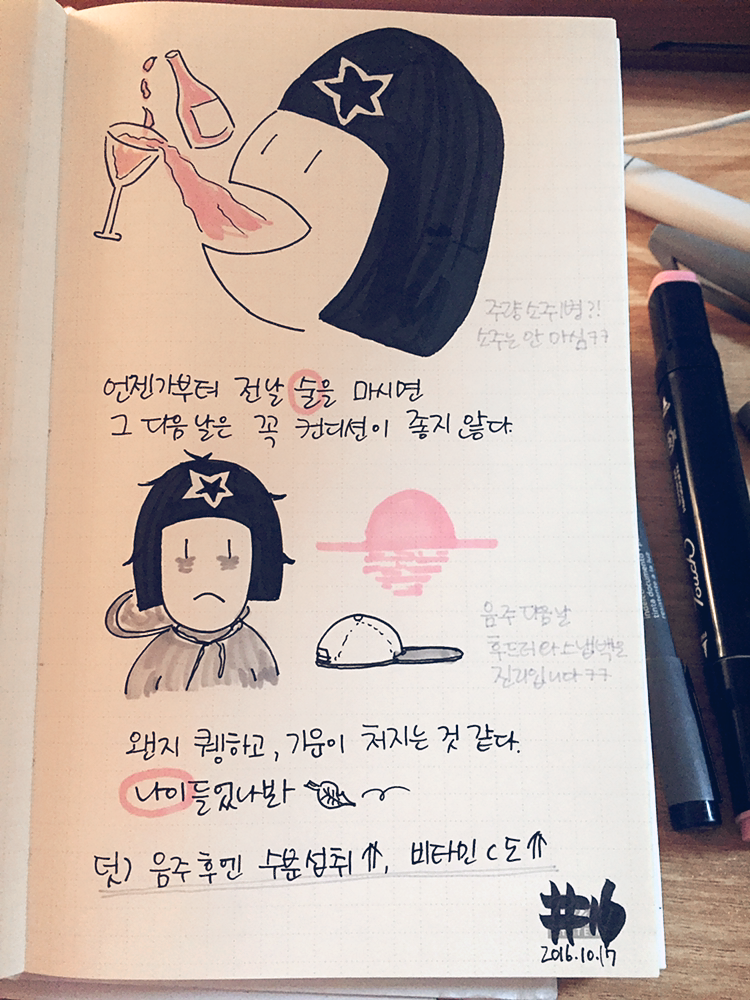 주량 소주1병?!
소주는 안 마심ㅋㅋ
언젠가부터 전날 술을 마시면
그 다음날은 꼭 컨디션이 좋지 않다.
음주 다음날
후드러와 스냅백은
진리입니다ㅋㅋ
왠지 퀭하고, 기운이 처지는 것 같다.
나이들었나봐
덧) 음주 후엔 수분섭취⇑, 비타민 C도⇑
2016.10.17